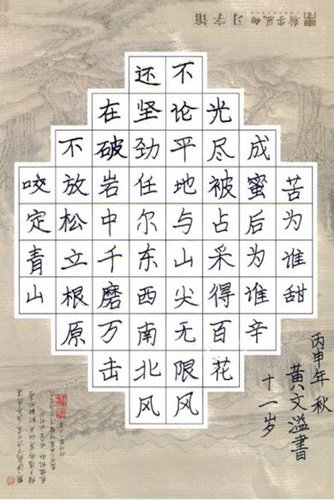 咬定青山
不放松立根原
在破岩中千磨万击
还坚劲任尔东西南北风
不论平地与山尖无限风
光尽被占采得百花
成蜜后为谁辛
苦为谁甜
丙申年秋
黄文溢書
十一岁
习字馆